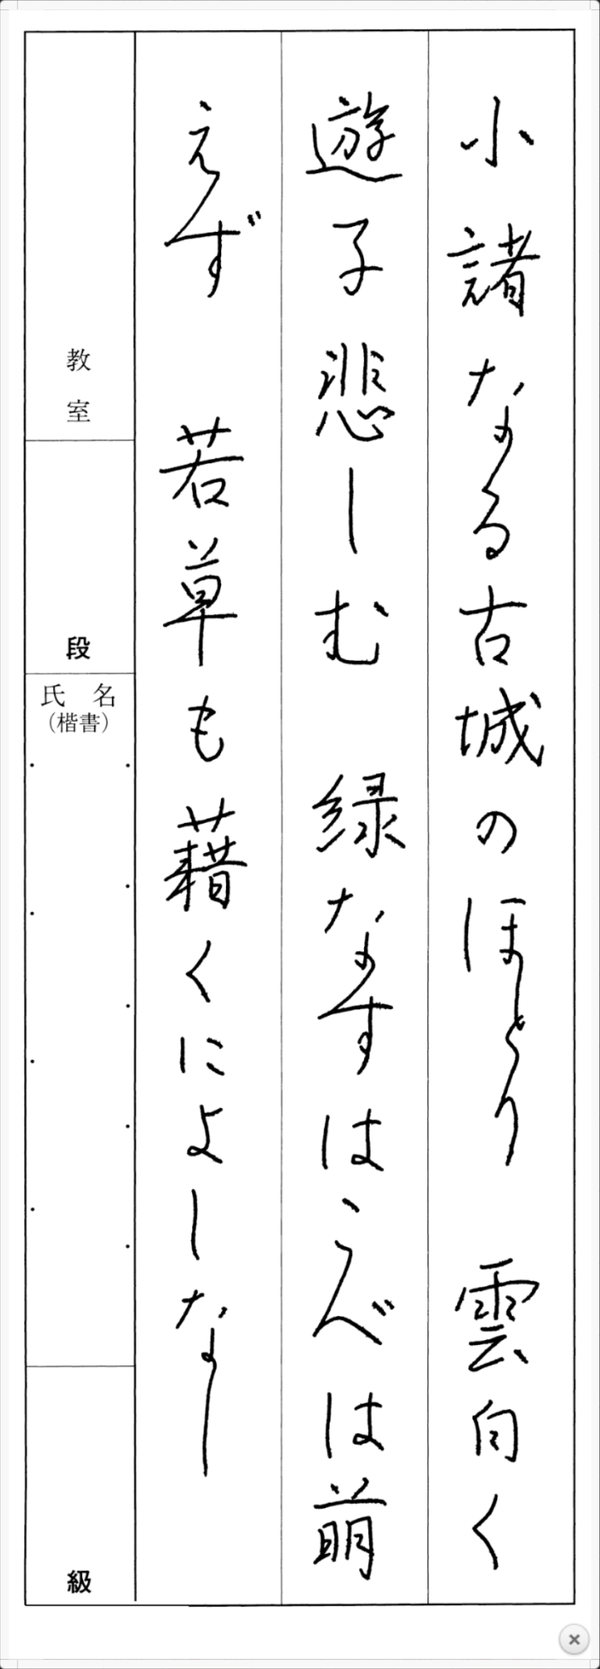 小諸なる古城のほとり 雲白く
遊子悲しむ 緑なすはこべは萌
えず 若草も藉くによしなし
教室
段
氏名
（楷書）
級